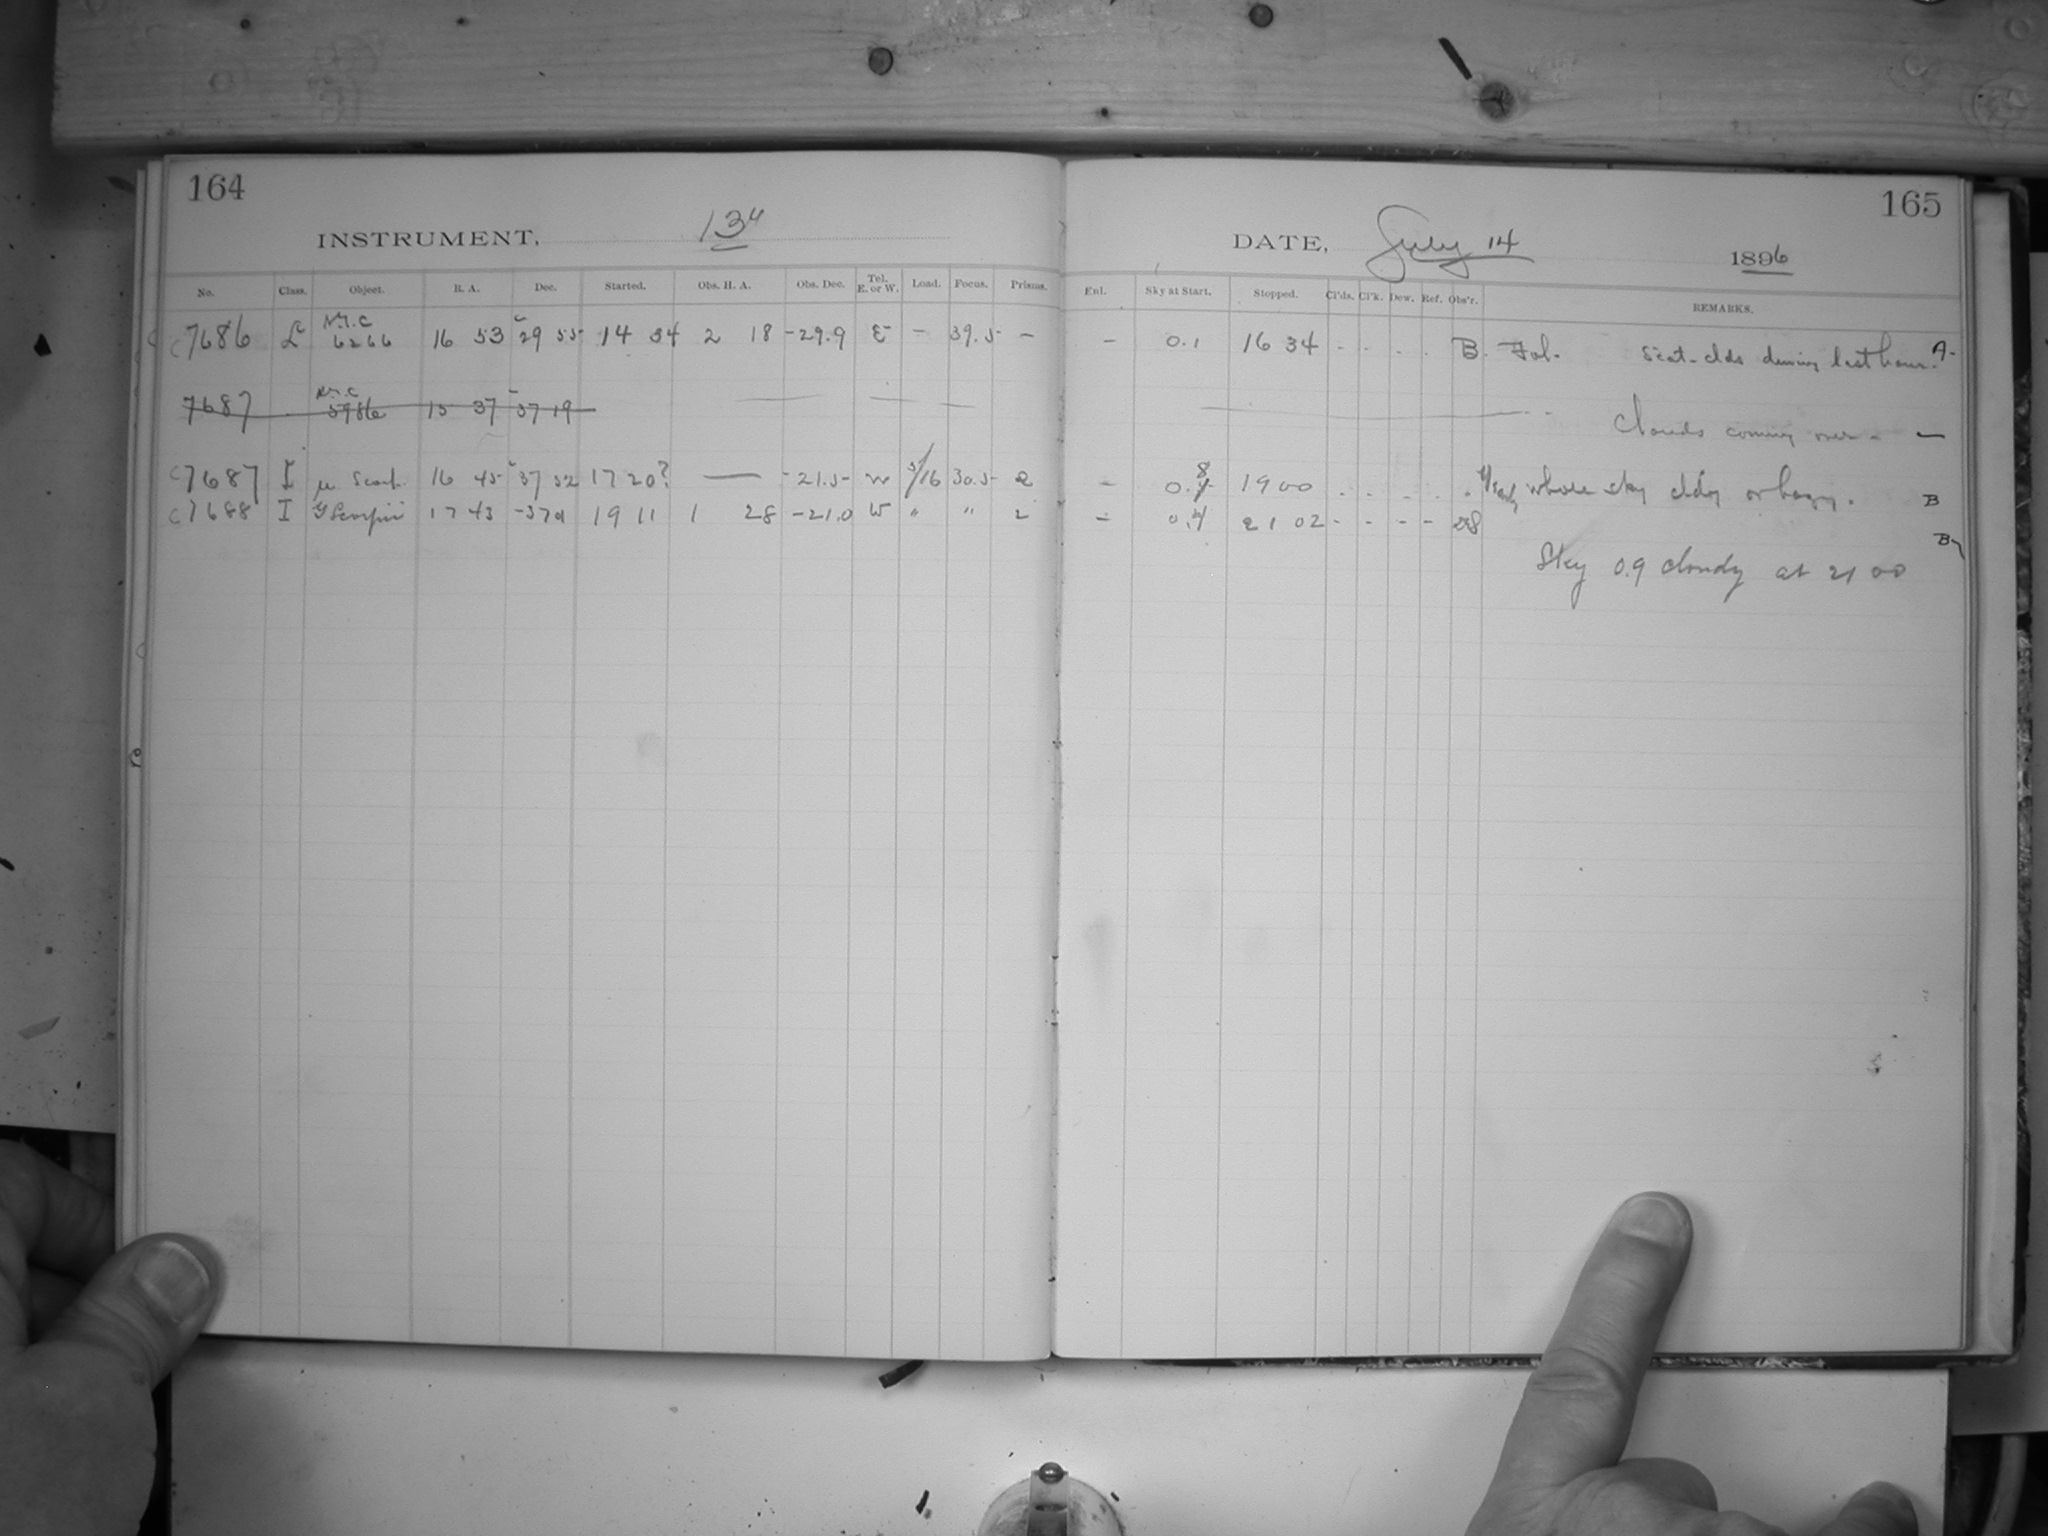 164
INSTRUMENT, 13"
No. Class. Object. R. A. Dec. Started. Obs. H. A. Obs. Dec. Tel. E. or W. Load. Focus. Prisms.
c7686 L N.G.C 6266 16 53 -29 55 14 34 2 18 -29.9 E - 39.5 -
7687 N.G.C 5986 15 37 -37 19
c7687 I μ Scorp. 16 45 -37 52 17 20? — -21.5 W 5/16 30.5 2
c7688 I G Scorpii 17 43 -37 0 19 11 1 28 -21.0 W " " 2
165
DATE, July 14 1896
Enl. Sky at Start. Stopped. Cl'ds. Cl'k. Dew. Ref. Obs'r. REMARKS.
- 0.1 16 34 - - . . B. Fol. Scat. clds during last hour. A-
Clouds coming over - —
- 0.8 19 00 . . - - . Nearly whole sky cldy or hazy. B
- 0.4 21 02 - - - - B-
Sky 0.9 cloudy at 21 00